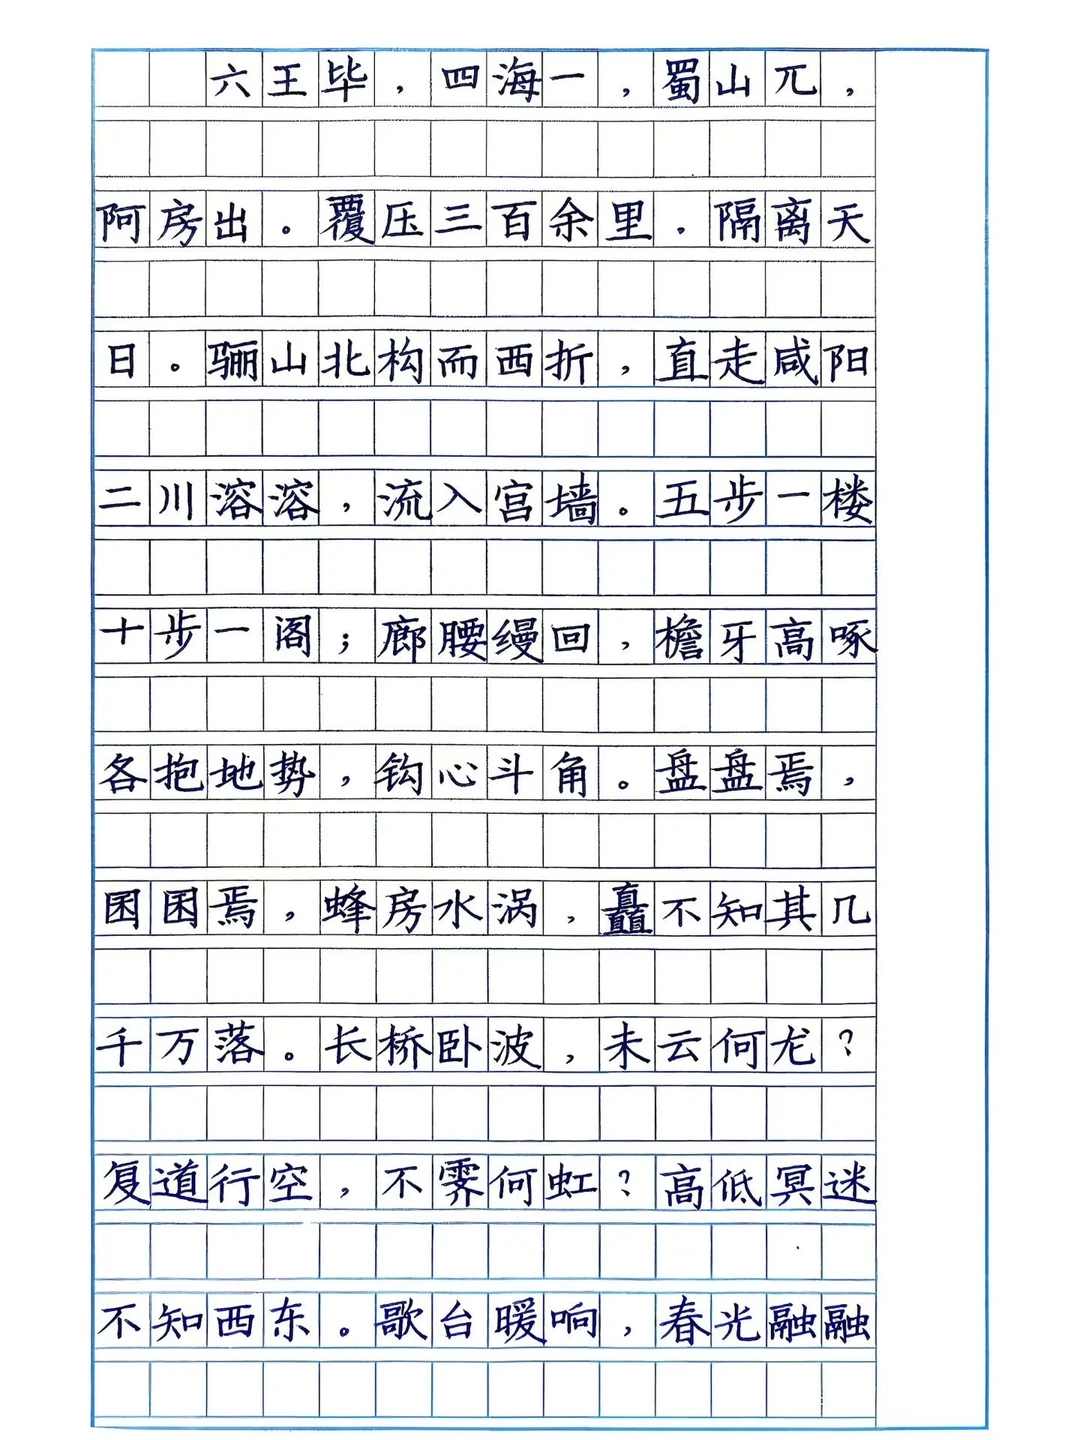 六王毕，四海一，蜀山兀，
阿房出。覆压三百余里.隔离天
日。骊山北构而西折，直走咸阳
二川溶溶，流入宫墙。五步一楼
十步一阁；廊腰缦回，檐牙高啄
各抱地势，钩心斗角。盘盘焉，
囷囷焉，蜂房水涡，矗不知其几
千万落。长桥卧波，未云何龙？
复道行空，不霁何虹？高低冥迷
不知西东。歌台暖响，春光融融